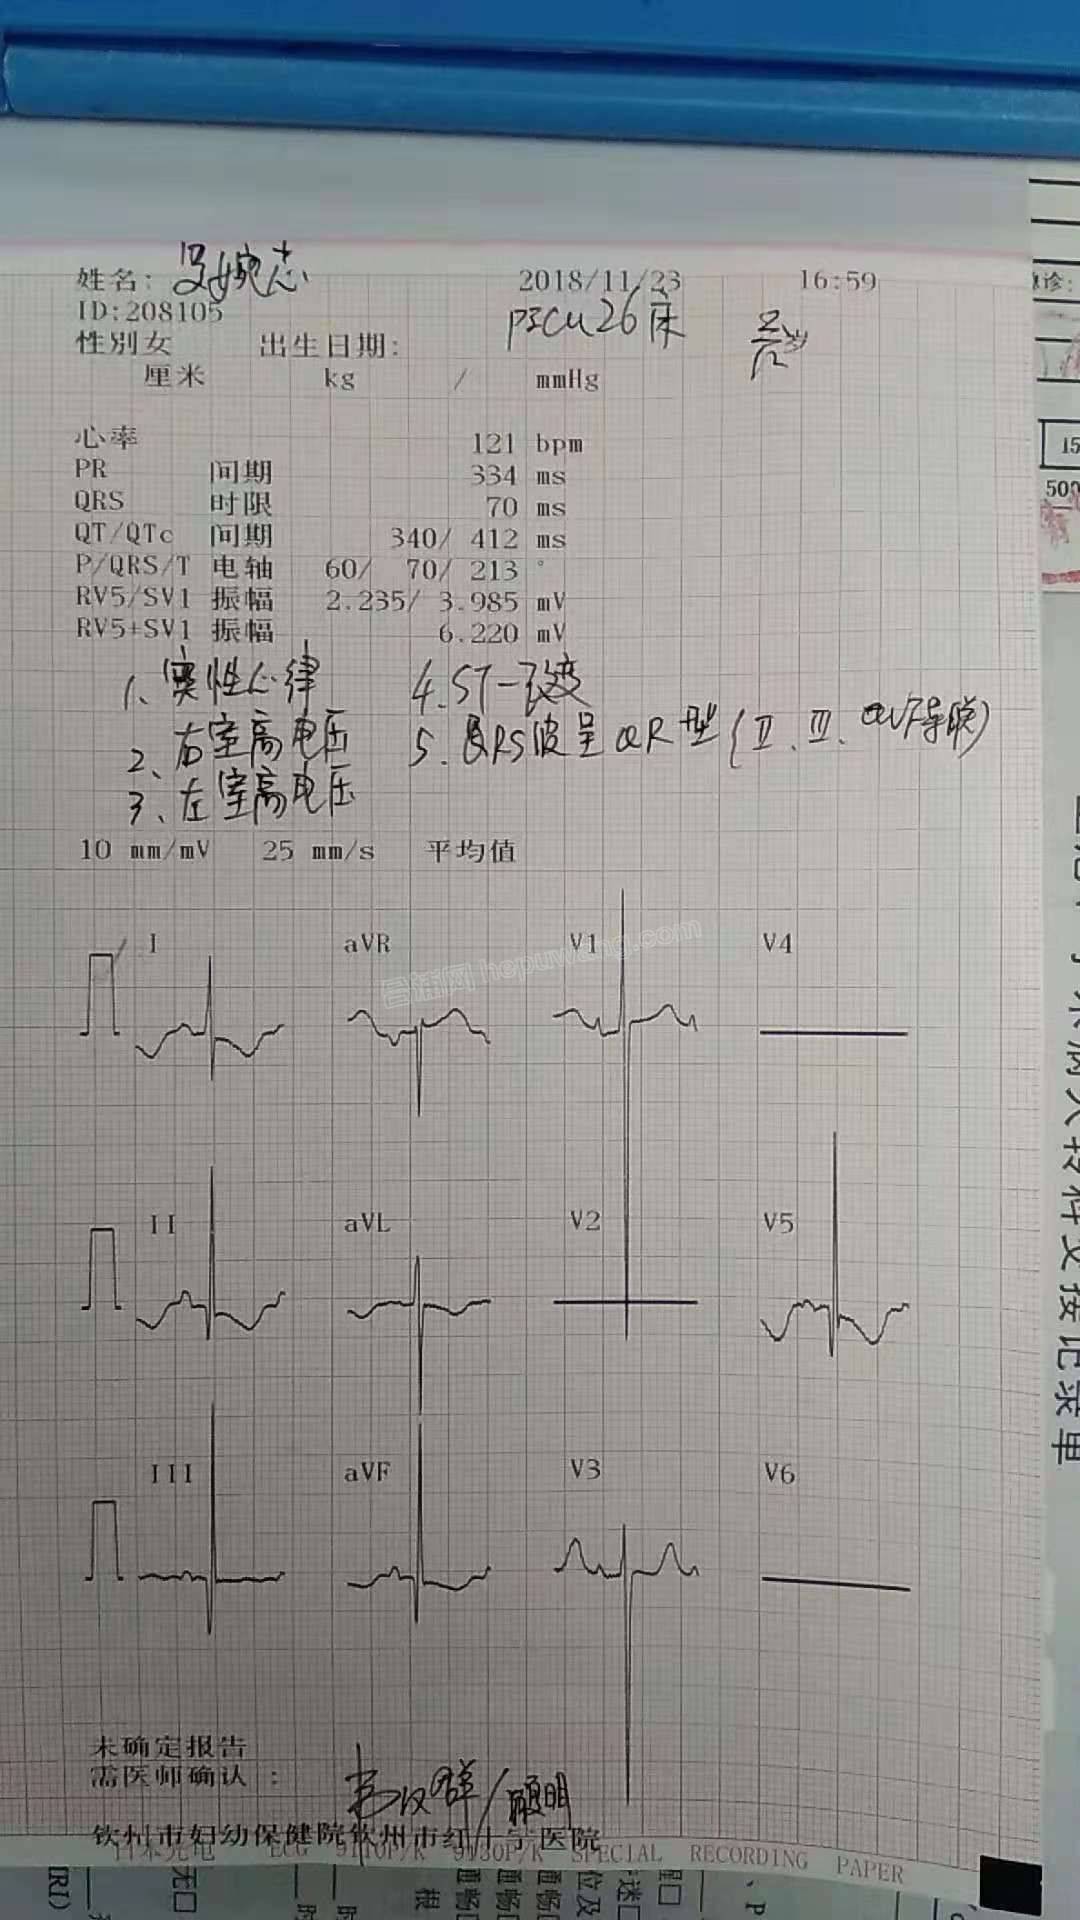 姓名: 2018/11/23 16:59
ID:208105 PICU26床
性别女 出生日期:
厘米 kg / mmHg
心率 121 bpm
PR 间期 334 ms
QRS 时限 70 ms
QT/QTc 间期 340/ 412 ms
P/QRS/T 电轴 60/ 70/ 213 °
RV5/SV1 振幅 2.235/ 3.985 mV
RV5+SV1 振幅 6.220 mV
1、窦性心律 4.ST-T改变
2、右室高电压 5.QRS波呈QR型(II、III、aVF导联)
3、左室高电压
10 mm/mV 25 mm/s 平均值
I aVR V1 V4
合浦网 hepuwang.com
II aVL V2 V5
III aVF V3 V6
未确定报告
需医师确认 :
钦州市妇幼保健院钦州市红十字医院
日本光电 ECG 9110P/K 9130P/K SPECIAL RECORDING PAPER
诊:
15
500
病人转科交接记录单